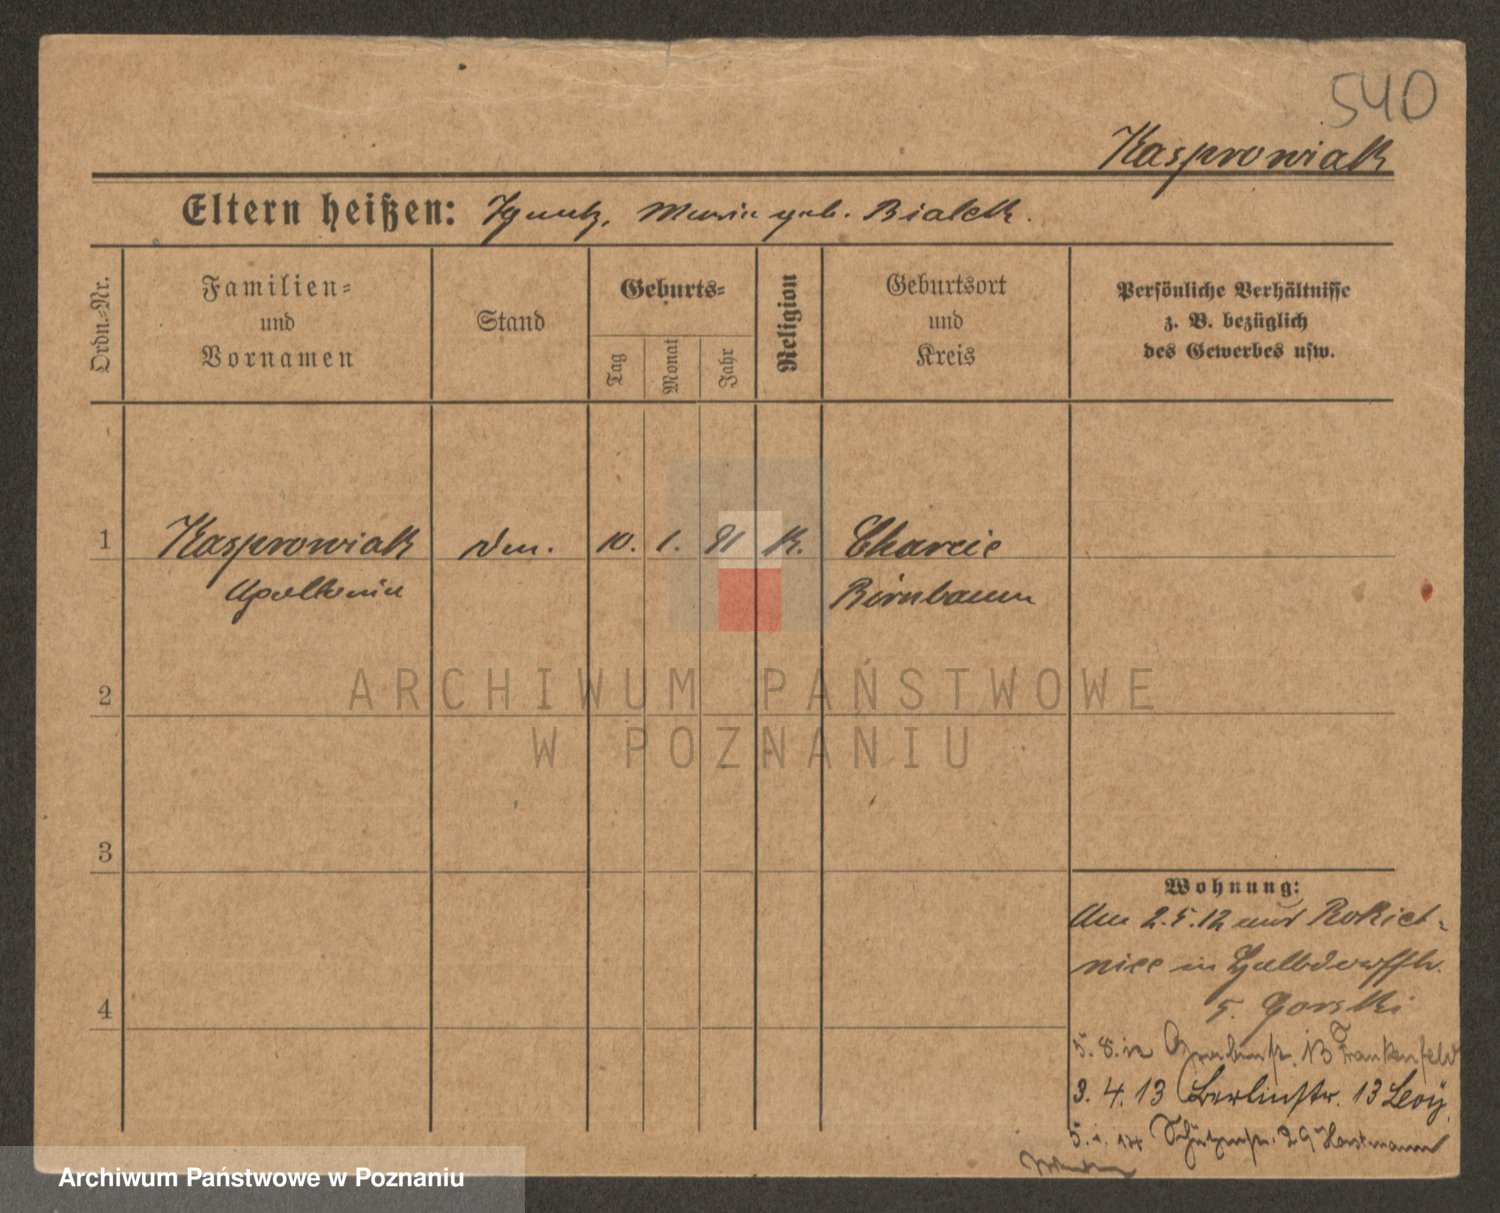 540
Kasprowiak
Eltern heißen: Ignatz, Maria geb. Bialek.
Ordn.-Nr.
Familien-
und
Vornamen
Stand
Geburts-
Tag
Monat
Jahr
Religion
Geburtsort
und
Kreis
Persönliche Verhältnisse
z. B. bezüglich
des Gewerbes usw.
1 Kasprowiak 10. 1. 91 K.
Apollonia Birnbaum
2
3
4
Wohnung:
Am 2.5.12 aus Rokiet-
nice in Halbdorfstr.
5. Gorski
5. 8. 12 13 Frankenfeld
3. 4. 13 Berlinstr. 13 Levy.
5. 1. 14 Schützenstr. 29 Horstmann
ARCHIWUM PAŃSTWOWE
W POZNANIU
Archiwum Państwowe w Poznaniu